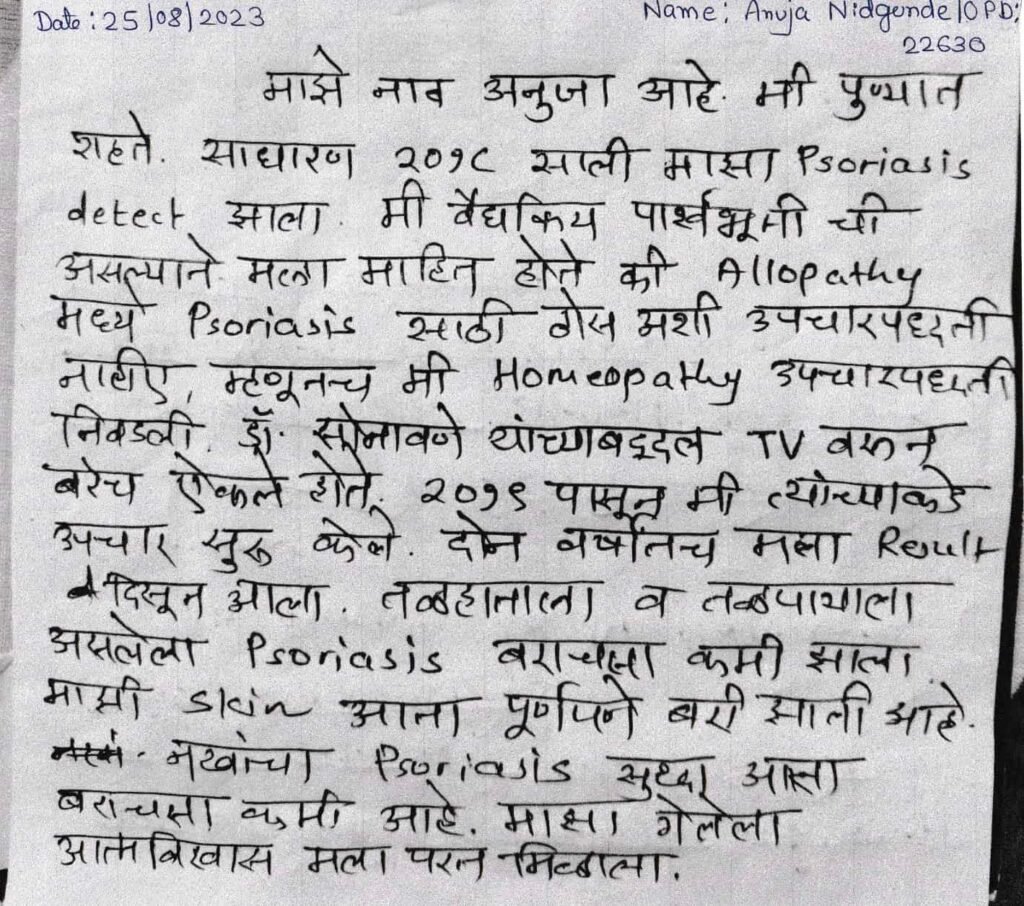 Date: 25/08/2023
Name: Anuja Nidgunde/OPD:
22630
माझे नाव अनुजा आहे. मी पुण्यात
राहते. साधारण २०१८ साली माझा Psoriasis
detect झाला. मी वैद्यकिय पार्श्वभूमी ची
असल्याने मला माहित होते की Allopathy
मध्ये Psoriasis साठी ठोस अशी उपचारपध्दती
नाहीए, म्हणूनच मी Homeopathy उपचारपध्दती
निवडली. डॉ. सोनावणे यांच्याबद्दल TV वरून
बरेच ऐकले होते. २०१९ पासून मी त्यांच्याकडे
उपचार सुरू केले. दोन वर्षातच मला Result
दिसून आला. तळहाताला व तळपायाला
असलेला Psoriasis बराचसा कमी झाला.
माझी skin आता पूर्णपणे बरी झाली आहे.
नखांचा Psoriasis सुध्दा आता
बराचसा कमी आहे. माझा गेलेला
आत्मविश्वास मला परत मिळाला.